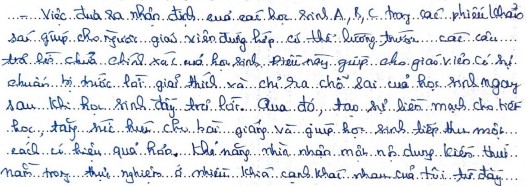 ... Việc đưa ra nhận định của các học sinh A, B, C trong các phiếu khảo
sát giúp cho người giáo viên đứng lớp có thể lường trước các câu
trả lời chưa chính xác của học sinh. Điều này giúp cho giáo viên có sự
chuẩn bị trước lời giải thích và chỉ ra chỗ sai của học sinh ngay
sau khi học sinh đấy trả lời. Qua đó, tạo sự liền mạch cho tiết
học, tăng sức hút cho bài giảng và giúp học sinh tiếp thu một
cách có hiệu quả hơn. Khả năng nhìn nhận một nội dung kiến thức
nằm trong thực nghiệm ở nhiều khía cạnh khác nhau của tôi từ đây